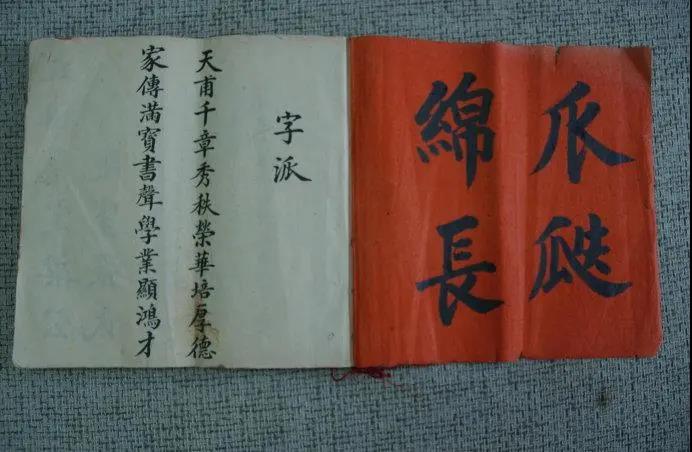 瓜瓞
綿長
字派
天甫千章秀秩榮華培厚德
家傳滿寶書聲學業顯鴻才